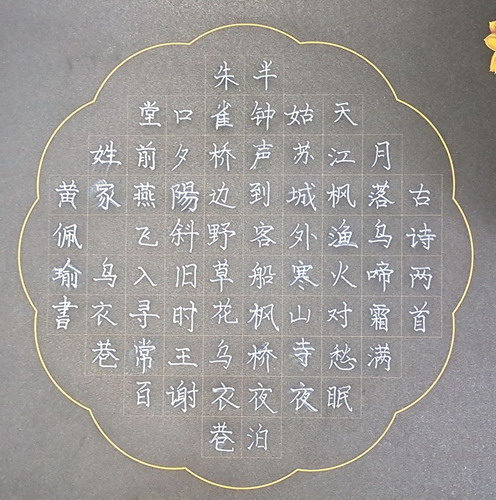 古诗两首
月落乌啼霜满
天江枫渔火对愁眠
姑苏城外寒山寺夜
半钟声到客船枫桥夜泊
朱雀桥边野草花乌衣巷
口夕陽斜旧时王谢
堂前燕飞入寻常百
姓家 乌衣巷
黄佩瑜書